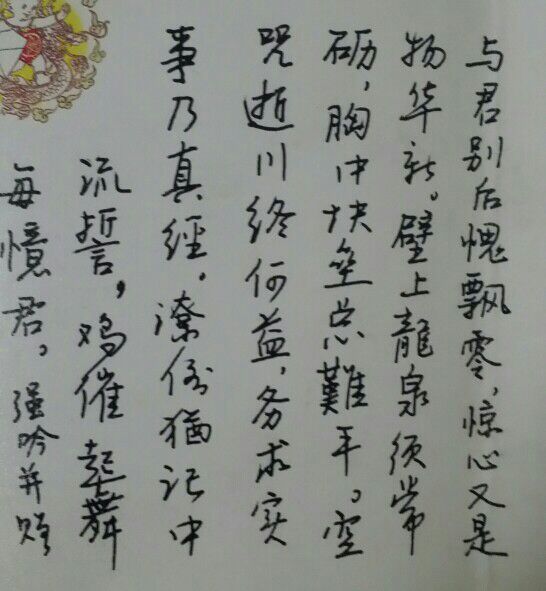 与君别后愧飘零，惊心又是
物华新。壁上龍泉须常
砺，胸中块垒总難平。空
咒逝川终何益，务求实
事乃真经。潦倒猶记中
流誓，鸡催起舞
每憶君。强吟并赠